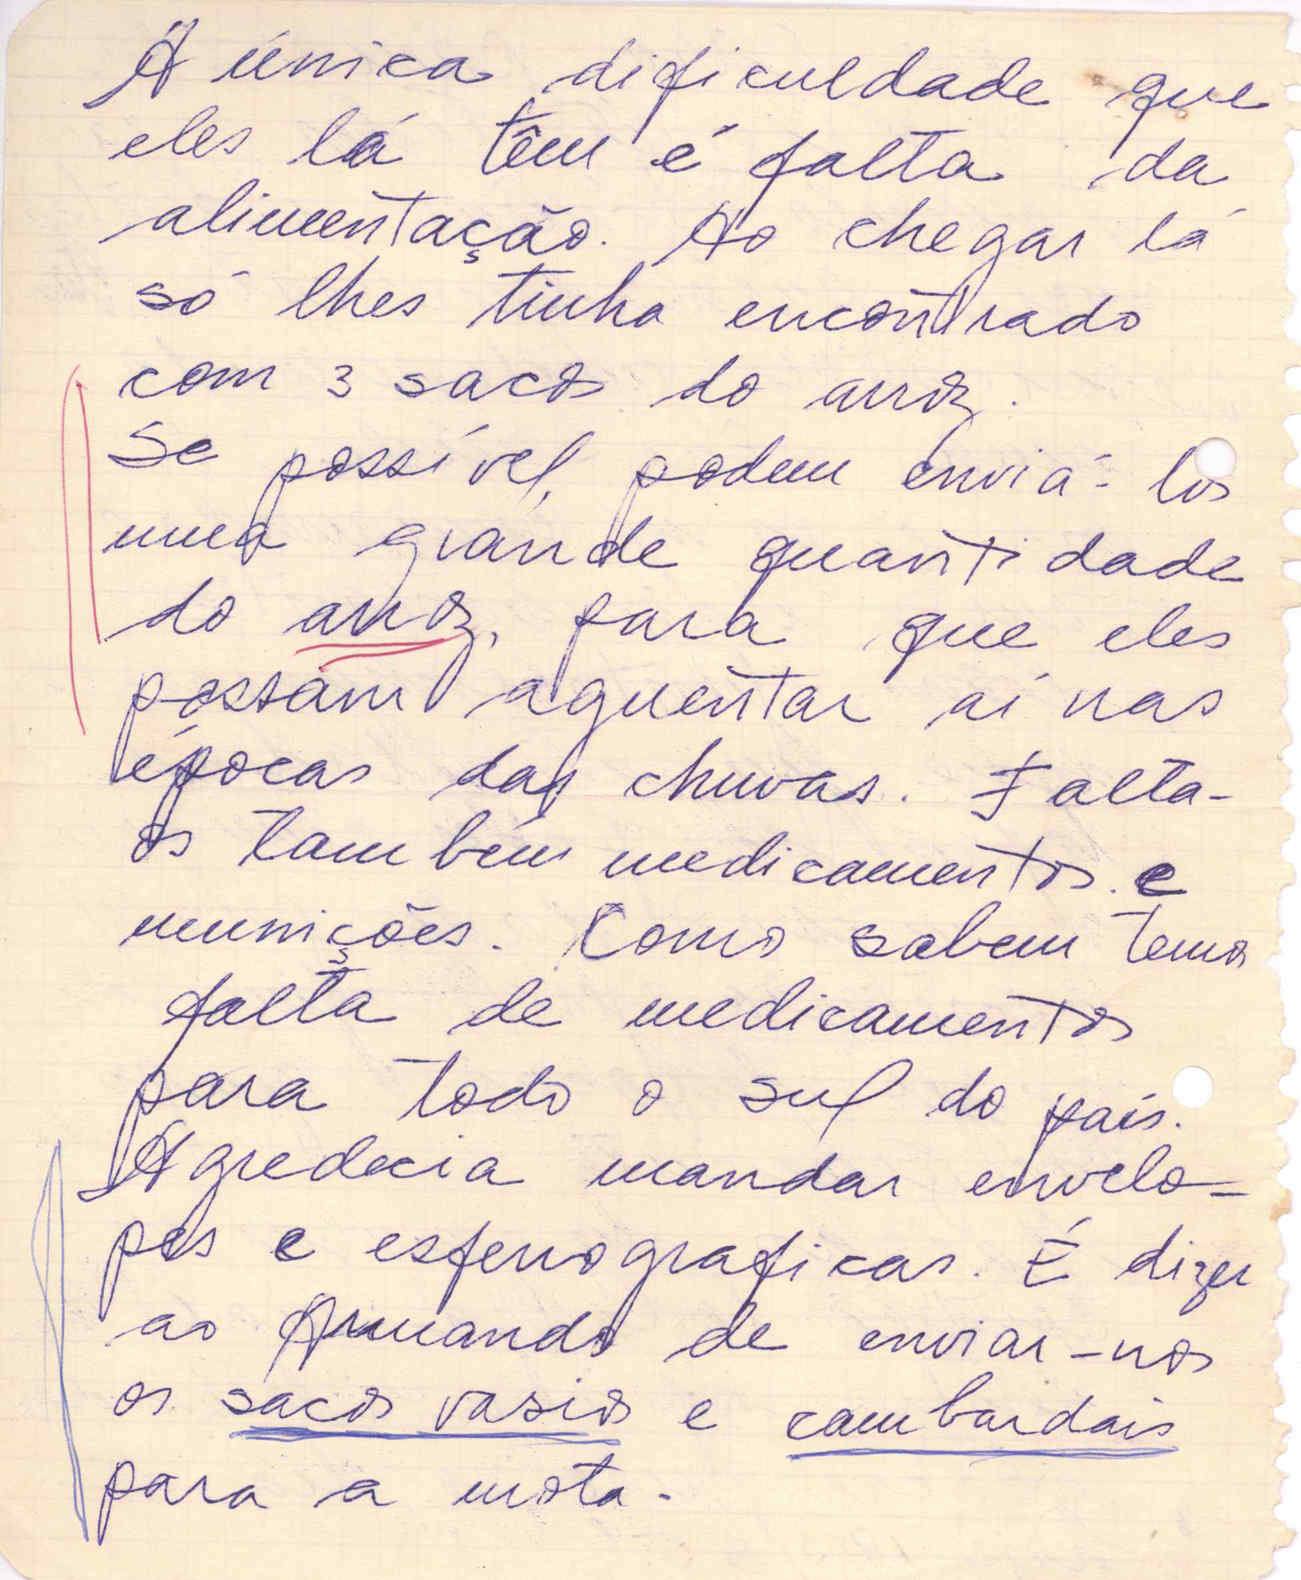 A única dificuldade que
eles lá têm é falta da
alimentação. Ao chegar lá
só lhes tinha encontrado
com 3 sacos do arroz.
Se possível, podem enviá-los
uma grande quantidade
do arroz, para que eles
possam aguentar aí nas
épocas das chuvas. Falta-
os também medicamentos e
munições. Como sabem temos
falta de medicamentos
para todo o sul do país.
Agredecia mandar envelo-
pes e esferograficas. É dizer
ao Armando de enviar-nos
os sacos vasios e cambardais
para a mota.